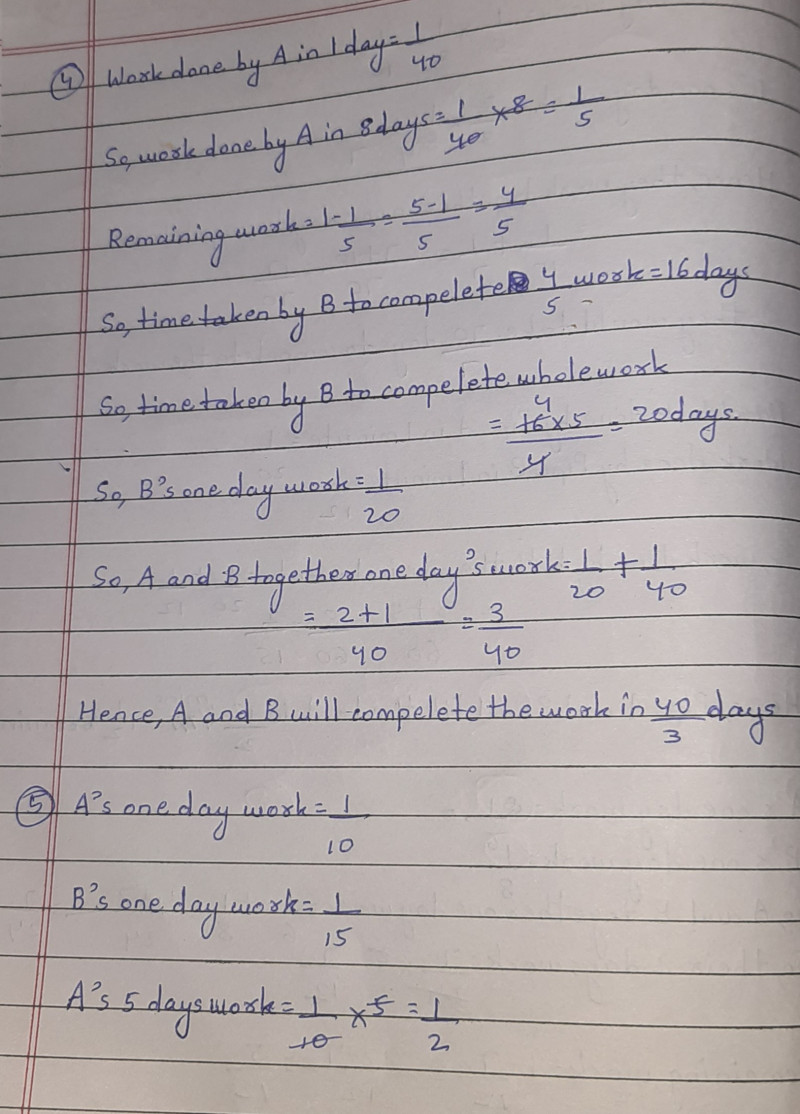 ④ Work done by A in 1 day = 1/40
So, work done by A in 8 days = 1/40 × 8 = 1/5
Remaining work = 1 - 1/5 = 5-1/5 = 4/5
So, time taken by B to compelete 4/5 work = 16 days
So, time taken by B to compelete whole work
= 16 × 5/4 = 20 days.
4
So, B's one day work = 1/20
So, A and B together one day's work = 1/20 + 1/40
= 2+1/40 = 3/40
Hence, A and B will compelete the work in 40/3 days
⑤ A's one day work = 1/10
B's one day work = 1/15
A's 5 days work = 1/10 × 5 = 1/2